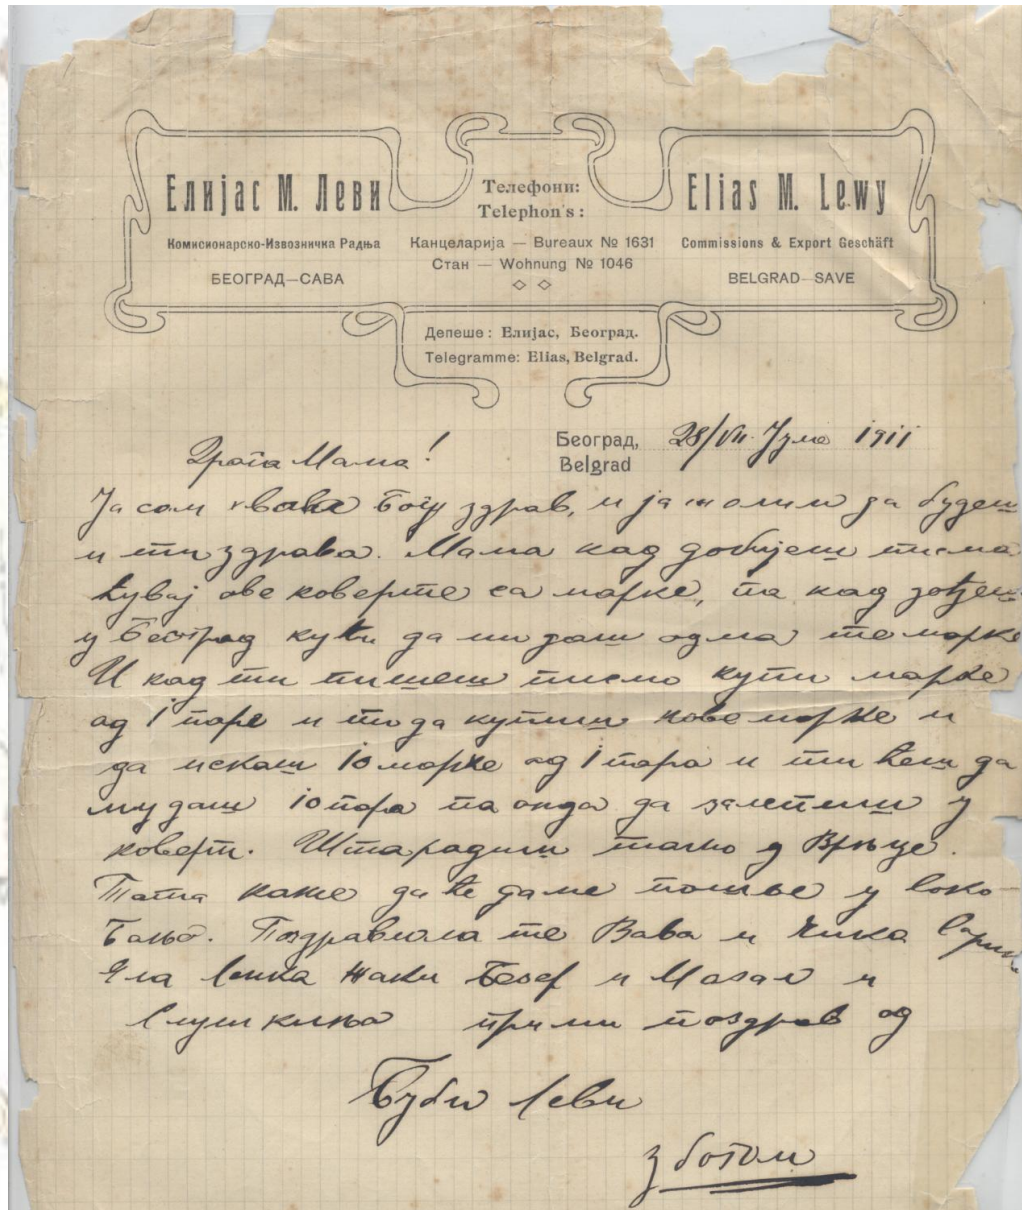 Елијас М. Леви
Комисионарско-Извозничка Радња
БЕОГРАД—САВА
Телефони:
Telephon's:
Канцеларија — Bureaux № 1631
Стан — Wohnung № 1046
Elias M. Lewy
Commissions & Export Geschäft
BELGRAD—SAVE
Депеше: Елијас, Београд.
Telegramme: Elias, Belgrad.
Београд, 28/VII. Јула 1911
Belgrad
Драга Мама!
Ја сам хвала Богу здрав, и ја молим да будеш
и ти здрава. Мама кад добијеш писма
чувај ове коверте са марке, па кад дођеш
у Београд кући да ми даш одма те марке
И кад ти пишеш писмо купи марке
од 1 паре и то да купиш нове марке и
да искаш 10 марке од 1 пара и ти ћеш да
му даш 10 пара па онда да залепиш у
коверт. Шта радиш тамо у Врњце.
Тата каже да ће да ме пошље у Соко
Бању. Поздравила те Вава и Чика
Жаки и Мазал и
Слушкиња прими поздрав од
Буби Леви
з богом